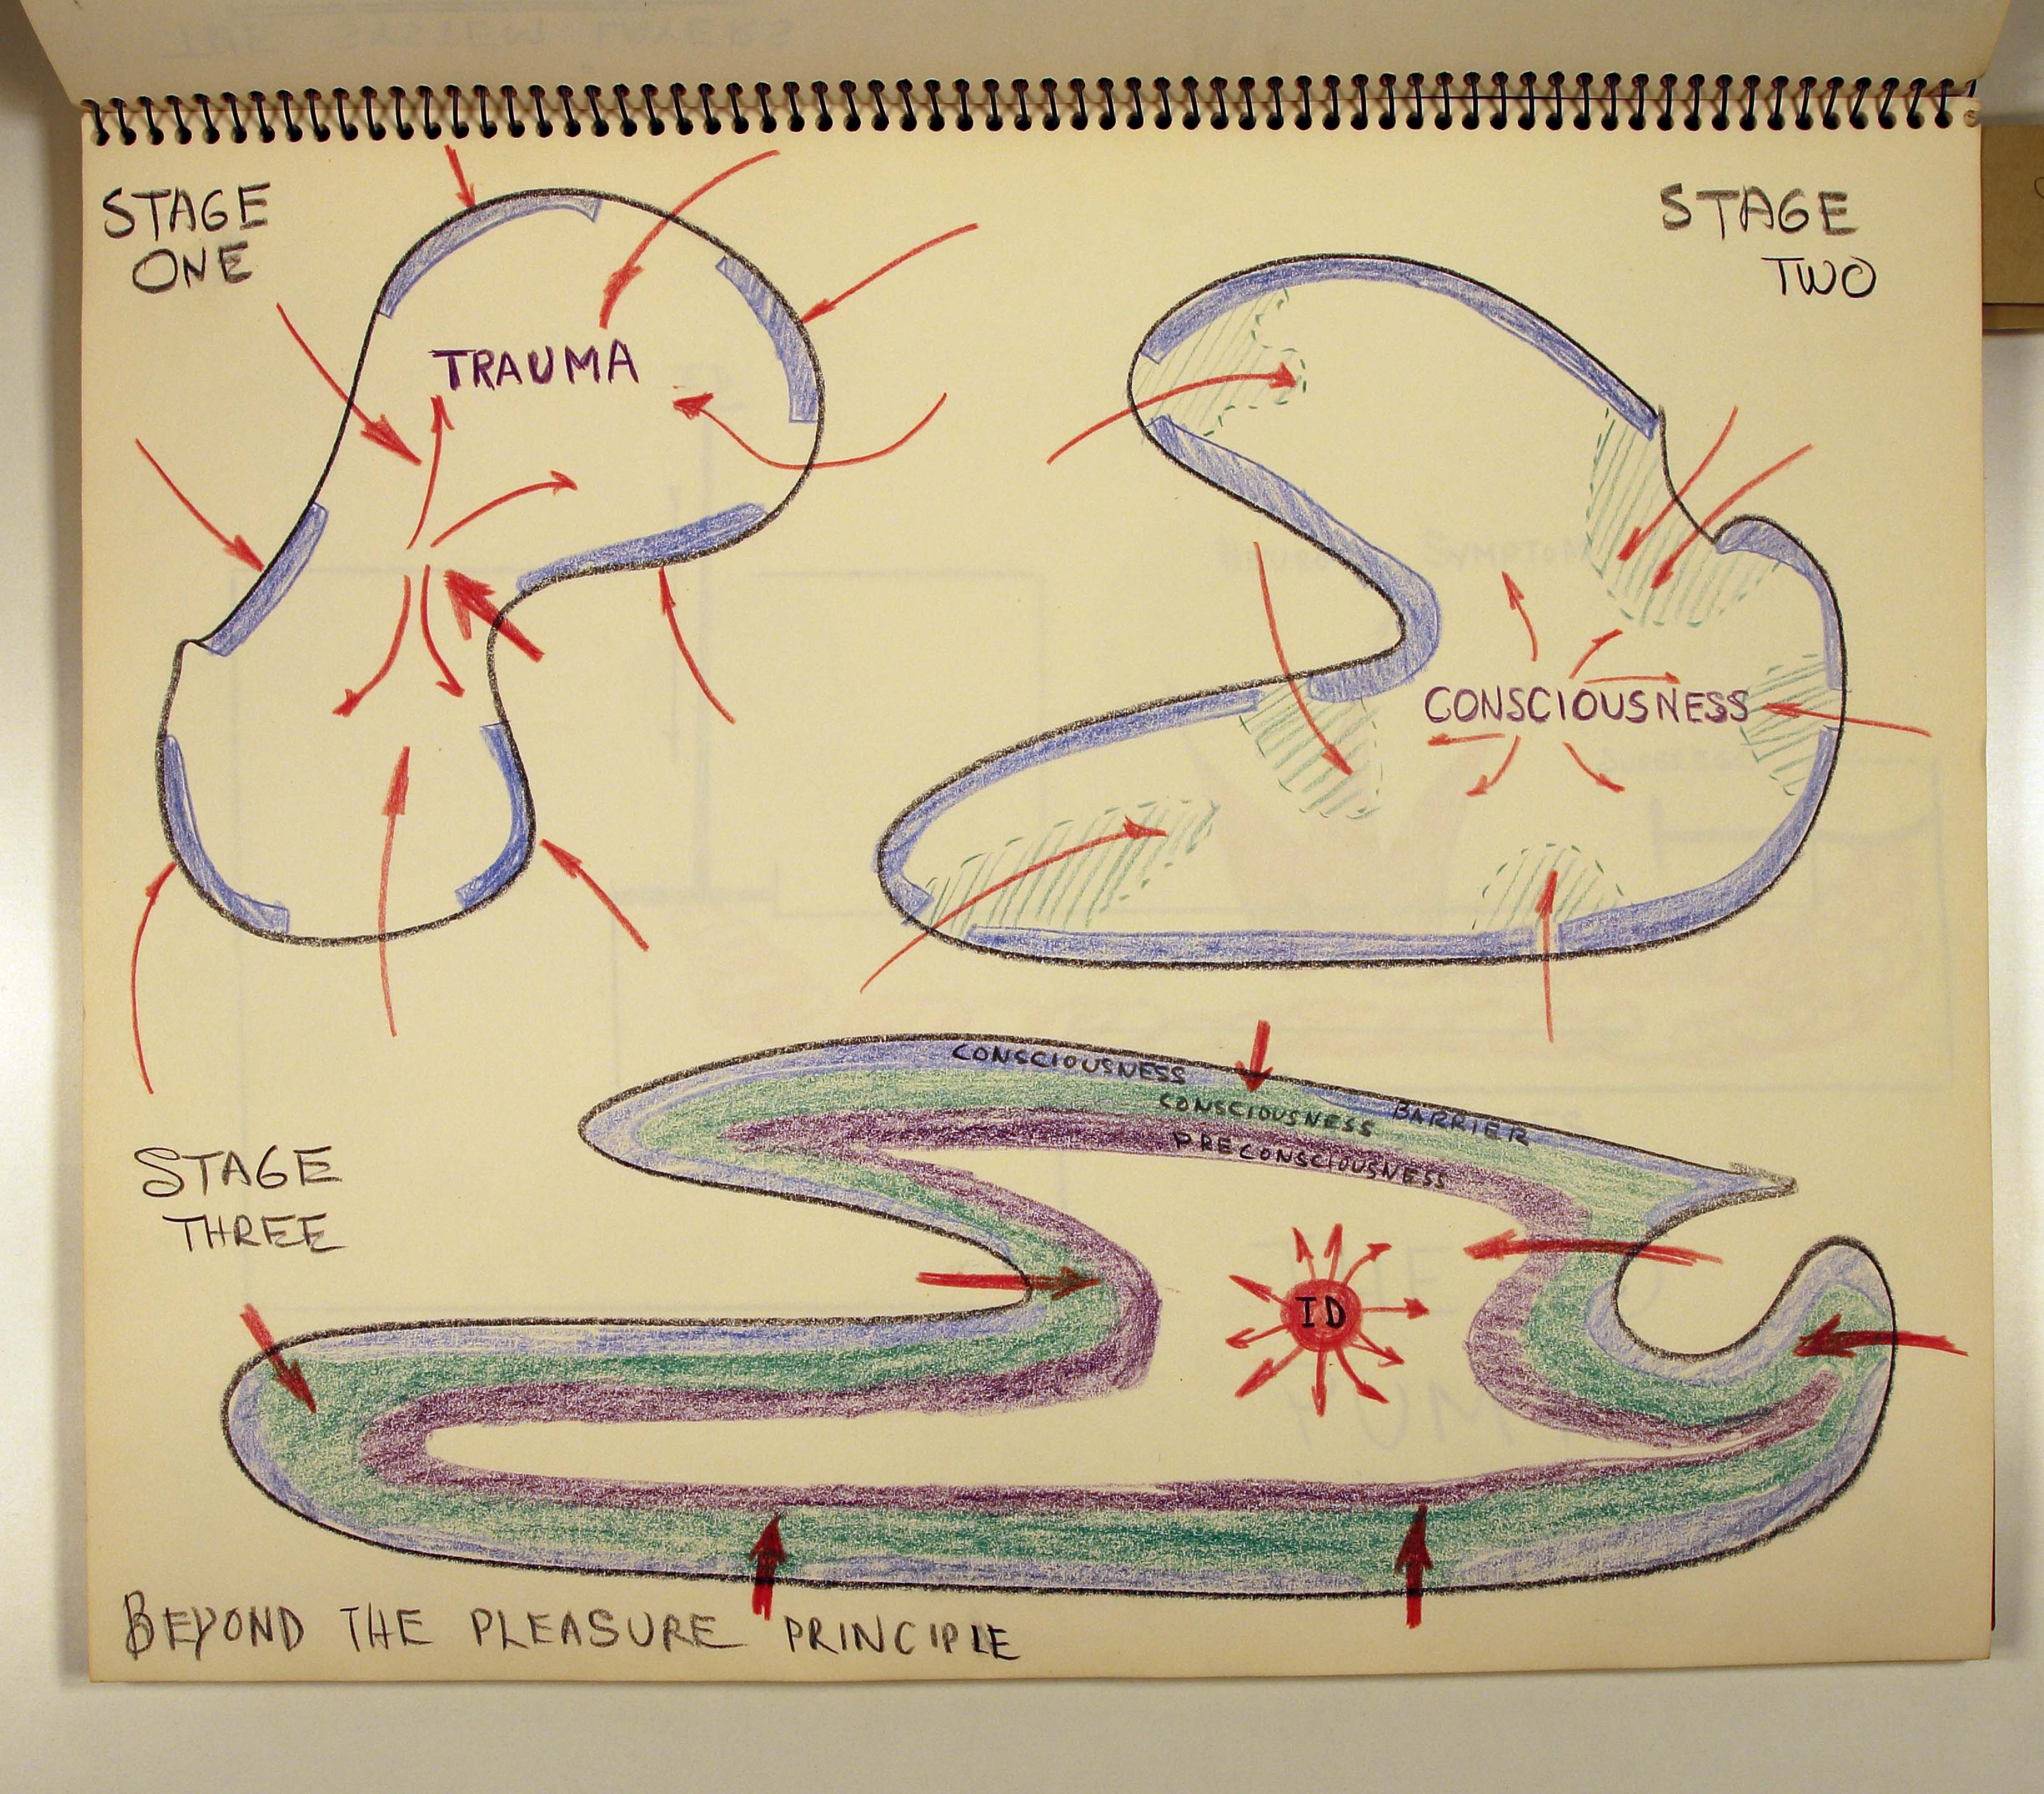 STAGE
ONE
TRAUMA
STAGE
TWO
CONSCIOUSNESS
STAGE
THREE
CONSCIOUSNESS BARRIER
CONSCIOUSNESS
PRECONSCIOUSNESS
ID
BEYOND THE PLEASURE PRINCIPLE
THE SYSTEM LAYERS